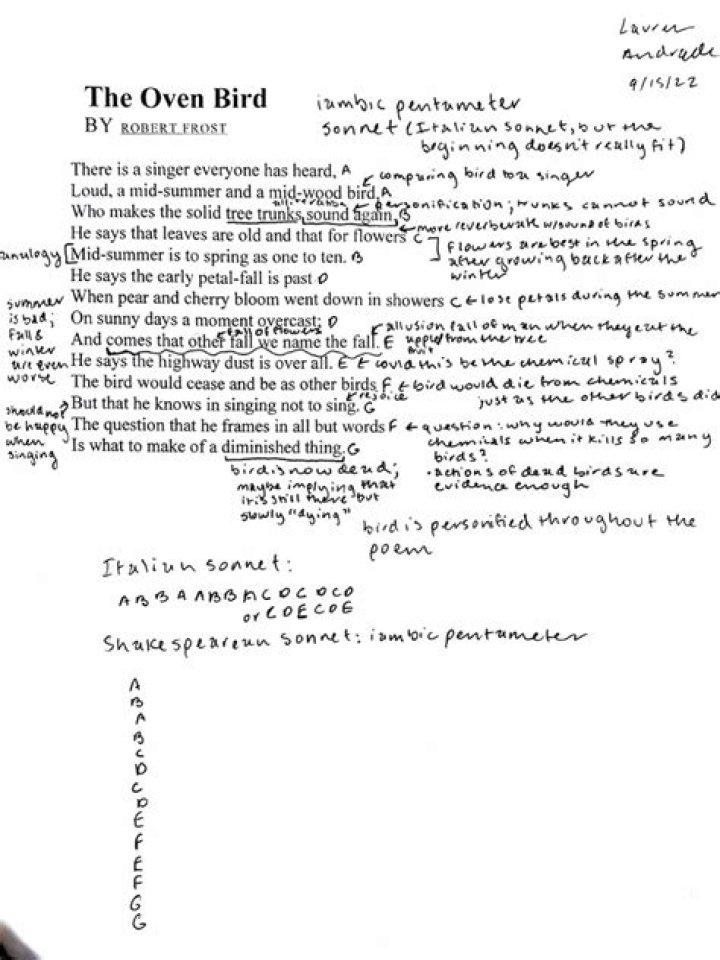 Lauren
Andrade
9/15/22
The Oven Bird
BY ROBERT FROST
iambic pentameter
sonnet (Italian sonnet, but the
beginning doesn't really fit)
There is a singer everyone has heard, A
comparing bird to a singer
Loud, a mid-summer and a mid-wood bird, A
alliteration
personification; trunks cannot sound
Who makes the solid tree trunks sound again. B
more reverberate w/sound of birds
He says that leaves are old and that for flowers C
analogy
Mid-summer is to spring as one to ten. B
flowers are best in the spring
after growing back after the
winter
He says the early petal-fall is past D
When pear and cherry bloom went down in showers C
lose petals during the summer
On sunny days a moment overcast; D
fall of flowers
allusion fall of man when they eat the
apple from the tree
fruit
And comes that other fall we name the fall. E
summer
is bad;
fall &
winter
are even
worse
He says the highway dust is over all. E
could this be the chemical spray?
The bird would cease and be as other birds F
bird would die from chemicals
just as the other birds did
rejoice
But that he knows in singing not to sing. G
should not
be happy
when
singing
The question that he frames in all but words F
question: why would they use
chemicals when it kills so many
birds?
• actions of dead birds are
evidence enough
Is what to make of a diminished thing. G
bird is now dead;
maybe implying that
it is still there but
slowly "dying"
bird is personified throughout the
poem
Italian sonnet:
A B B A A B B A C D C D C D
or C D E C D E
Shakespearean sonnet: iambic pentameter
A
B
A
B
C
D
C
D
E
F
E
F
G
G